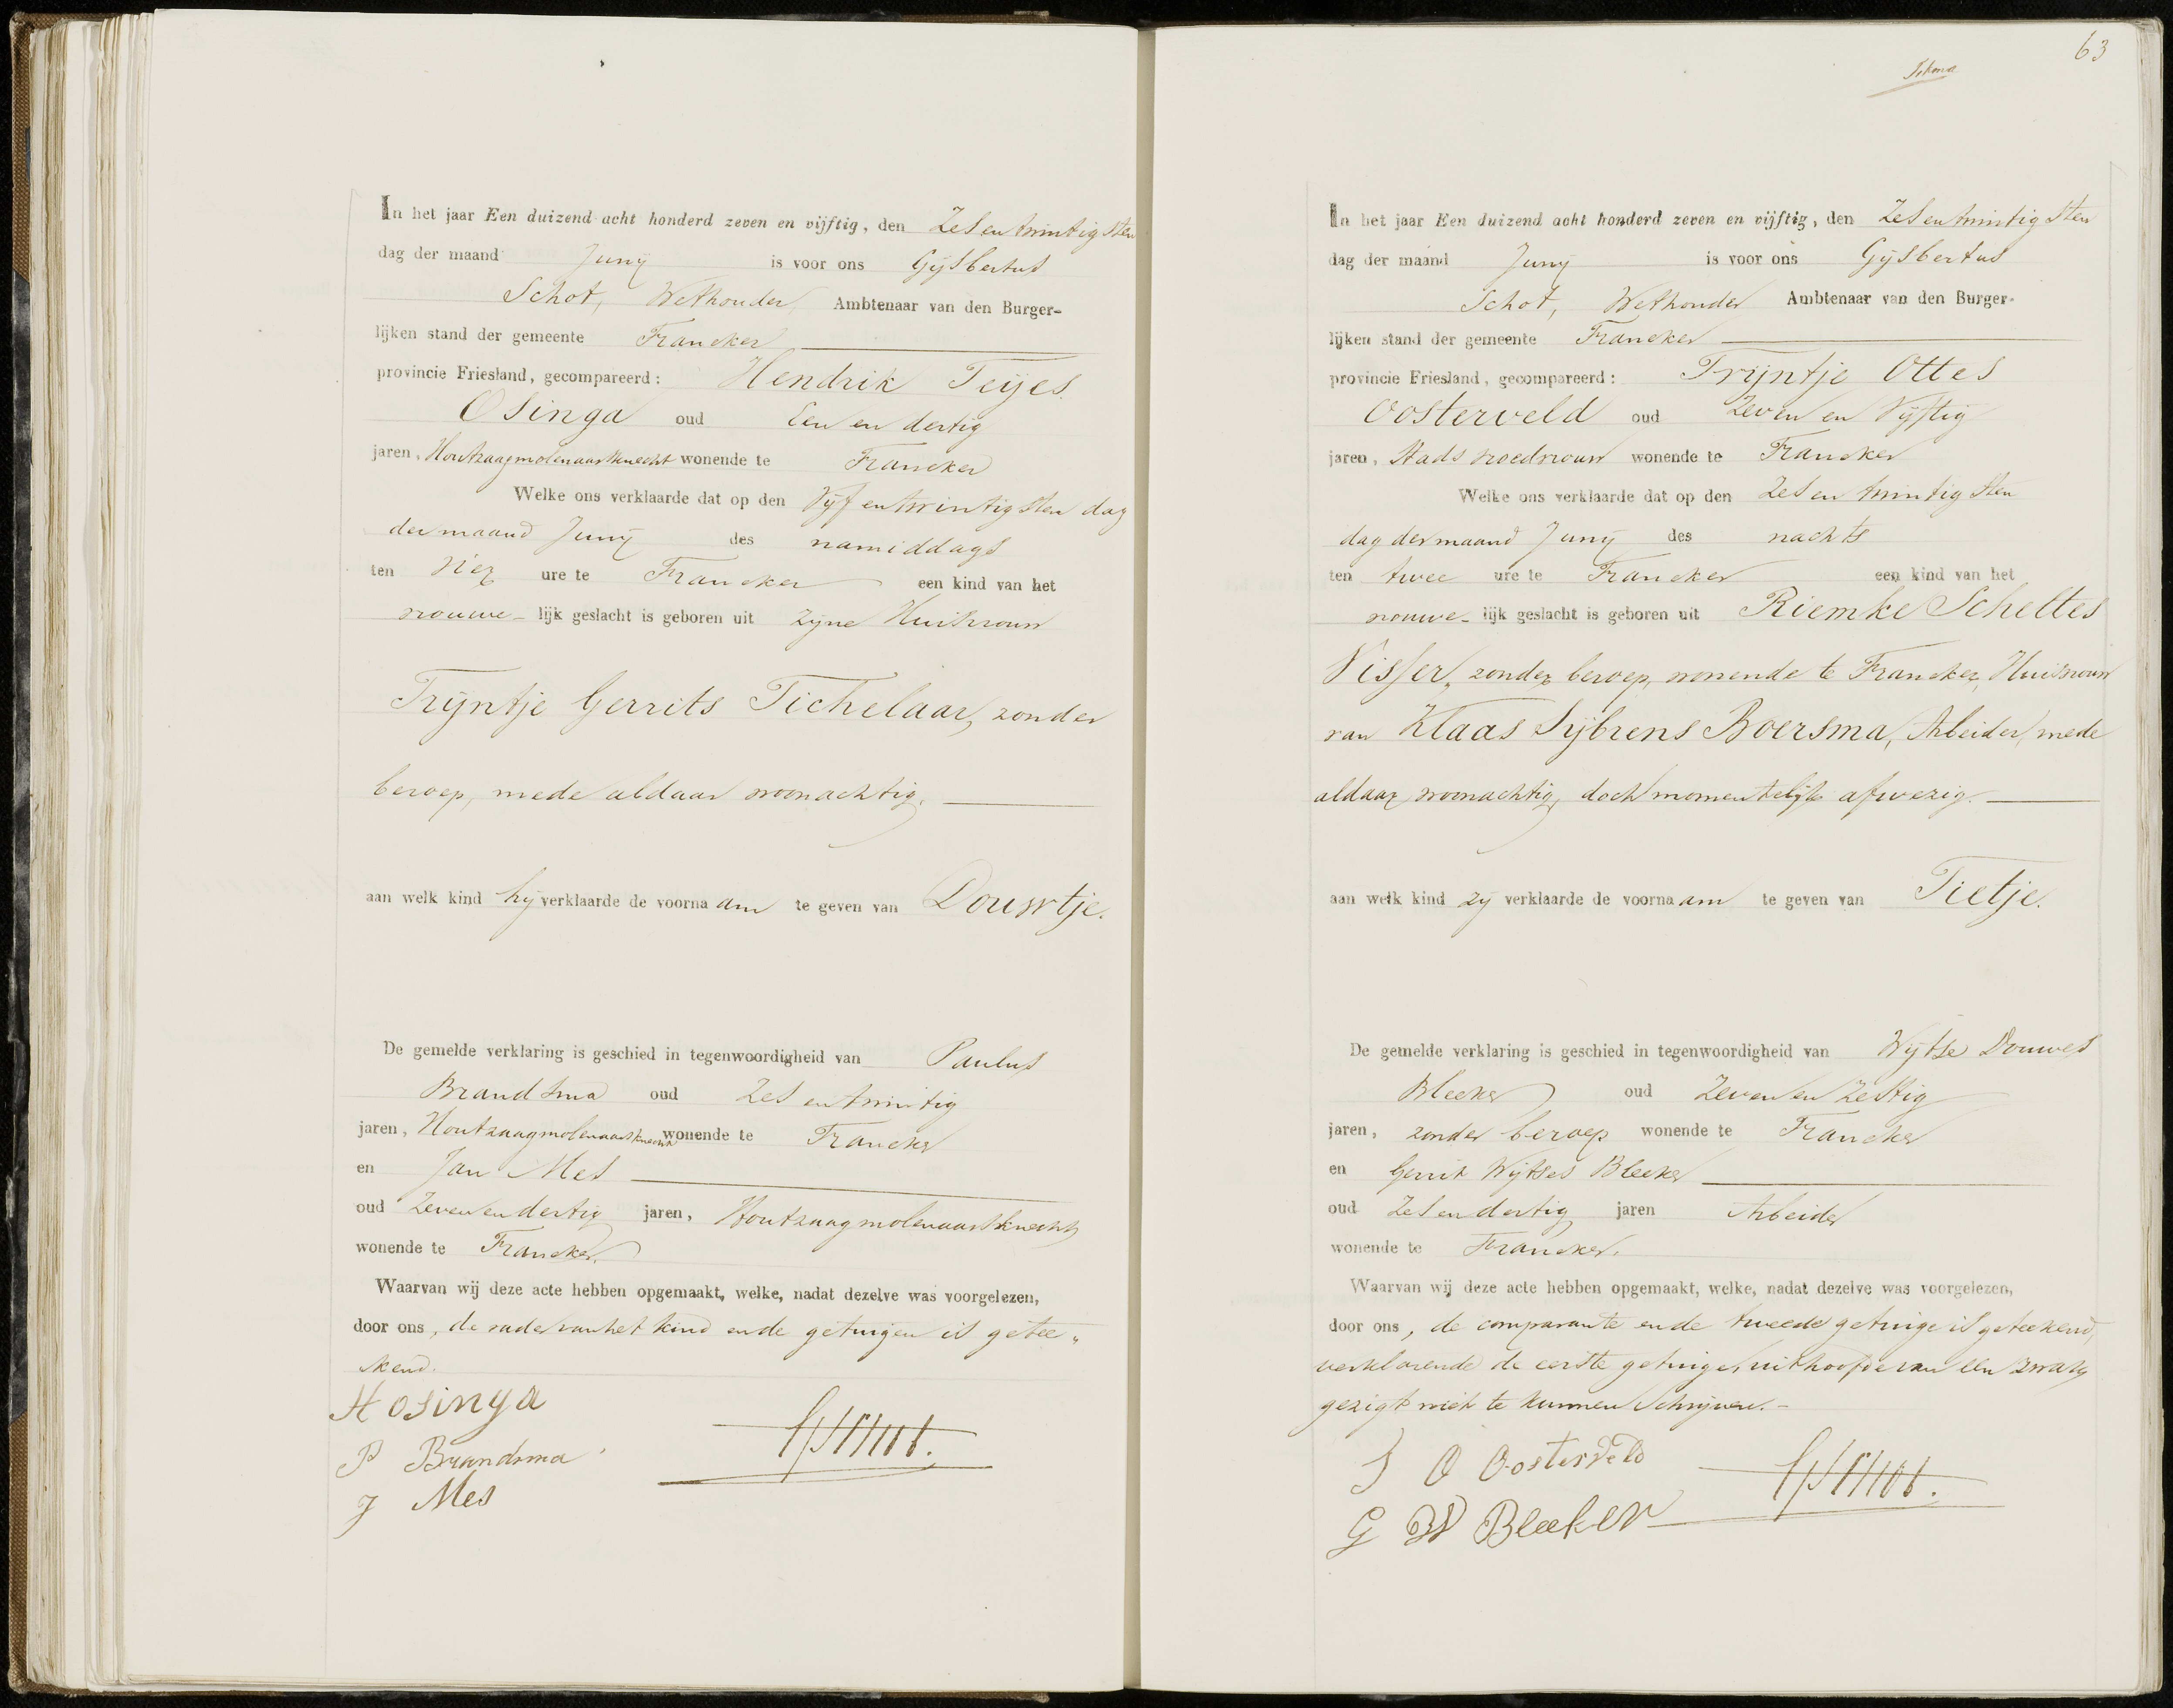 In het jaar Een duizend acht honderd zeven en vijftig, den Zesentwintigsten
dag der maand Junij is voor ons Gijsbertus
Schot, Wethouder, Ambtenaar van den Burger-
lijken stand der gemeente Franeker
provincie Friesland, gecompareerd: Hendrik Teijes
Osinga oud Een en dertig
jaren, Houtzaagmolenaarsknecht wonende te Franeker
Welke ons verklaarde dat op den Vijfentwintigsten dag
der maand Junij des namiddags
ten vier ure te Franeker een kind van het
vrouwe- lijk geslacht is geboren uit zijne Huisvrouw
Trijntje Gerrits Tichelaar, zonder
beroep, mede aldaar woonachtig.
aan welk kind hij verklaarde de voorna am te geven van Douwtje.
De gemelde verklaring is geschied in tegenwoordigheid van Paulus
Brandsma oud Zes en twintig
jaren, Houtzaagmolenaarsknecht wonende te Franeker
en Jan Mes
oud Zeven en dertig jaren, Houtzaagmolenaarsknecht
wonende te Franeker.
Waarvan wij deze acte hebben opgemaakt, welke, nadat dezelve was voorgelezen,
door ons, de vader van het kind en de getuigen is getee-
kend.
H Osinga
P Brandsma
J Mes
63
In het jaar Een duizend acht honderd zeven en vijftig, den Zesentwintigsten
dag der maand Junij is voor ons Gijsbertus
Schot, Wethouder Ambtenaar van den Burger-
lijken stand der gemeente Franeker
provincie Friesland, gecompareerd: Trijntje Ottes
Oosterveld oud Zeven en Vijftig
jaren, Stads vroedvrouw wonende te Franeker
Welke ons verklaarde dat op den Zes en twintigsten
dag der maand Junij des nachts
ten twee ure te Franeker een kind van het
vrouwe- lijk geslacht is geboren uit Riemke Scheltes
Visser, zonder beroep, wonende te Franeker, Huisvrouw
van Klaas Sijbrens Boersma, Arbeider, mede
aldaar woonachtig, doch momentelijk afwezig.
aan welk kind zij verklaarde de voorna am te geven van Tietje.
De gemelde verklaring is geschied in tegenwoordigheid van Wijtse Douwes
Bleeker oud Zeven en Zestig
jaren, zonder beroep wonende te Franeker
en Gerrit Wijtses Bleeker
oud Zes en dertig jaren Arbeider
wonende te Franeker.
Waarvan wij deze acte hebben opgemaakt, welke, nadat dezelve was voorgelezen,
door ons, de comparante en de tweede getuige is geteekend,
verklarende de eerste getuige, uithoofde van een zwak
gezigt niet te kunnen schrijven.
T O Oosterveld
G W Bleeker